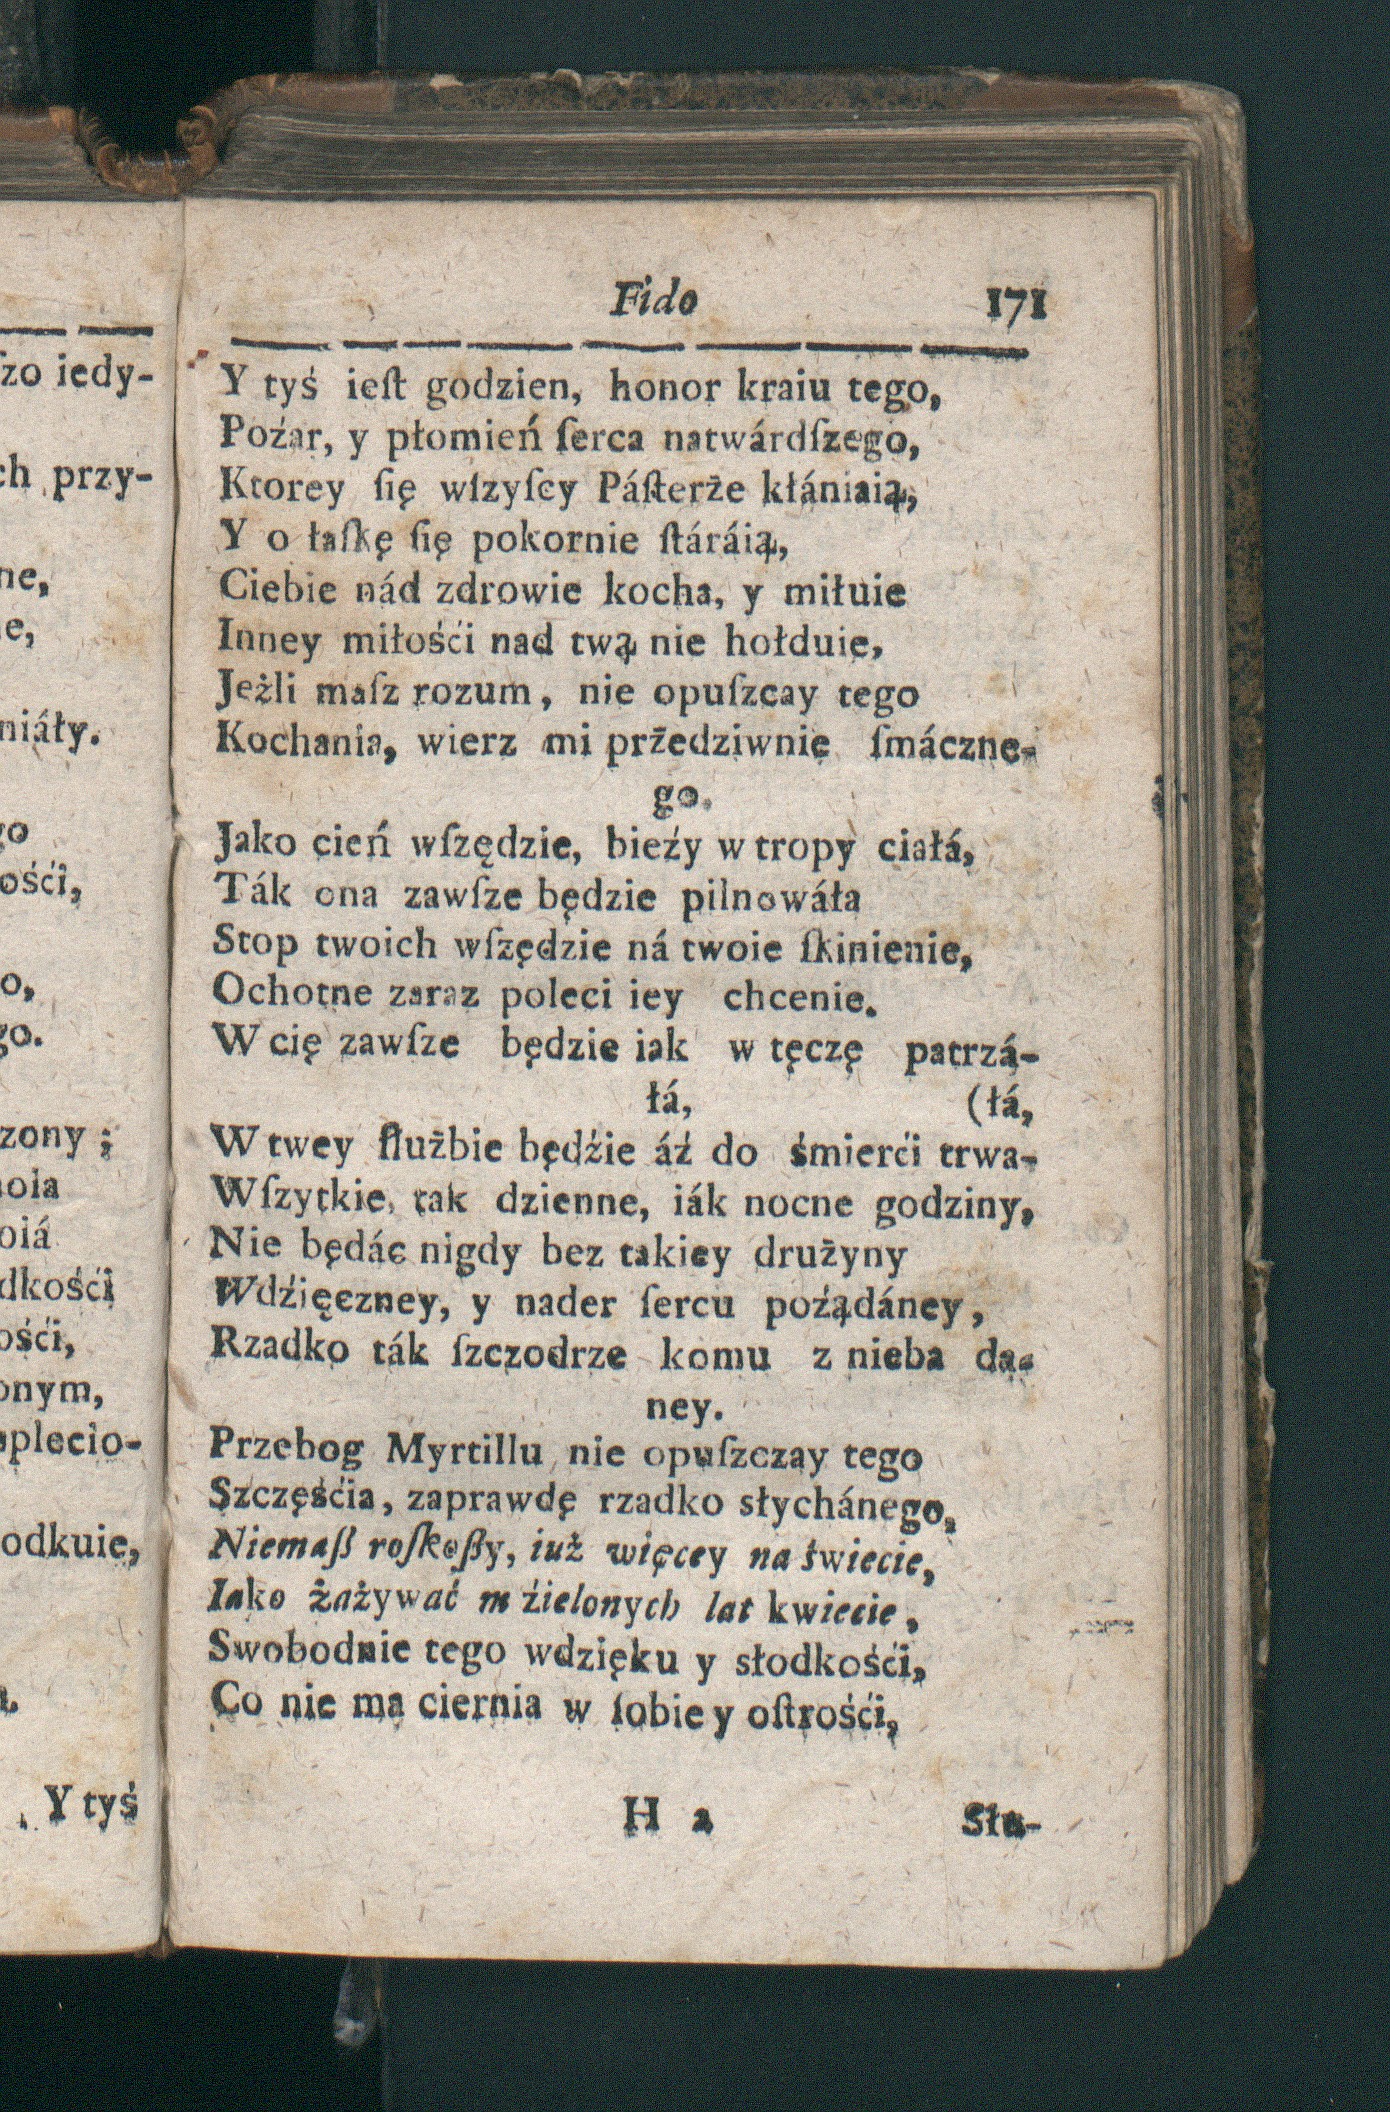 zo iedy-
ch przy-
ne,
e,
niáły.
go
ośći,
o,
go.
zony ;
noia
oiá
dkośći
ośći,
onym,
plecio-
odkuie,
Y tyś
Fido 171
Y tyś ieſt godzien, honor kraiu tego,
Poźar, y płomień ſerca natwárdſzego,
Ktorey ſię wſzyſcy Páſterże kłániaią,
Y o łaſkę ſię pokornie ſtáráią,
Ciebie nád zdrowie kocha, y miłuie
Inney miłośći nad twą nie hołduie,
Jeżli maſz rozum, nie opuſzcay tego
Kochania, wierz mi prżedziwnię ſmáczne-
go.
Jako cień wſzędzie, bieźy w tropy ciałá,
Ták ona zawſze będzie pilnowáła
Stop twoich wſzędzie ná twoie ſkinienie,
Ochotne zaraz poleci iey chcenie.
W cię zawſze będzie iak w tęczę patrzá-
łá, (łá,
W twey ſlużbie będźie áź do śmierći trwa-
Wſzytkie, tak dzienne, iák nocne godziny,
Nie będác nigdy bez takiey drużyny
Wdźięczney, y nader ſercu poźądáney,
Rzadko ták ſzczodrze komu z nieba da-
ney.
Przebog Myrtillu nie opuſzczay tego
Szczęśćia, zaprawdę rzadko słychánego,
Niemaß roſkoßy, iuż więcey na świecie,
Iako żażywać w źielonych lat kwiecie,
Swobodnie tego wdzięku y słodkośći,
Co nie ma ciernia w ſobie y oſtrośći,
H 2 Słu-